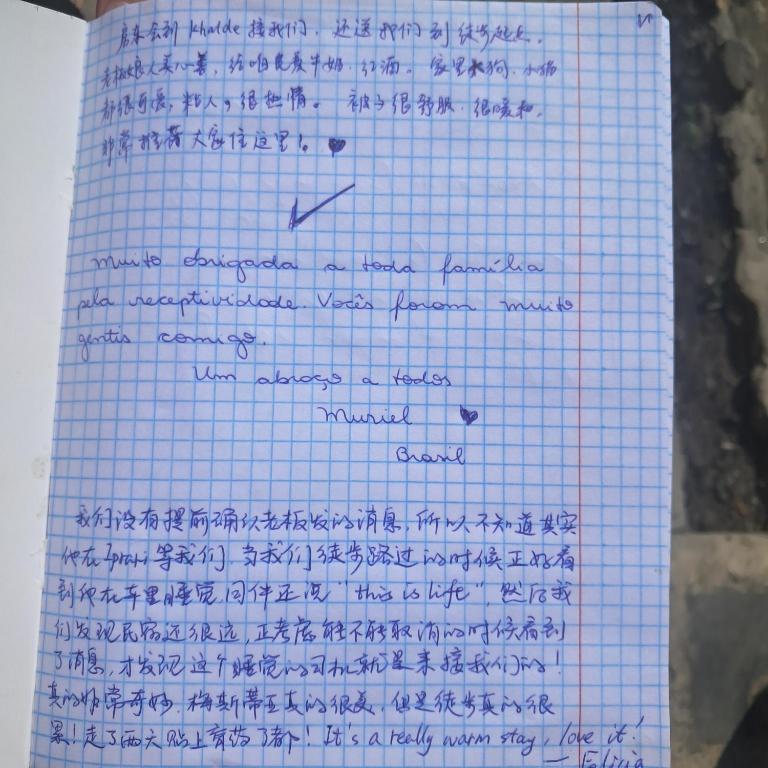 房东会到 Khalde 接我们, 还送我们到徒步起点.
老板娘人美心善, 给咱煮夏牛奶, 红酒。家里狗, 小猫
都很可爱, 粘人, 很热情。 被子很舒服, 很暖和,
非常推荐大家住这里!
Muito obrigada a toda família
pela receptividade. Vocês foram muito
gentis comigo.
Um abraço a todos
Muriel
Brasil
我们没有提前确认老板发的消息, 所以不知道其实
他在 Iprari 等我们, 当我们徒步路过的时候正好看
到他在车里睡觉, 同伴还说 "this is life", 然后我
们发现民宿还很远, 正考虑能不能取消的时候看到
了消息, 才发现这个睡觉的司机就是来接我们的!
真的非常奇妙. 梅斯蒂亚真的很美, 但是徒步真的很
累! 走了两天贴上膏药了都! It's a really warm stay, love it!
— Felicia